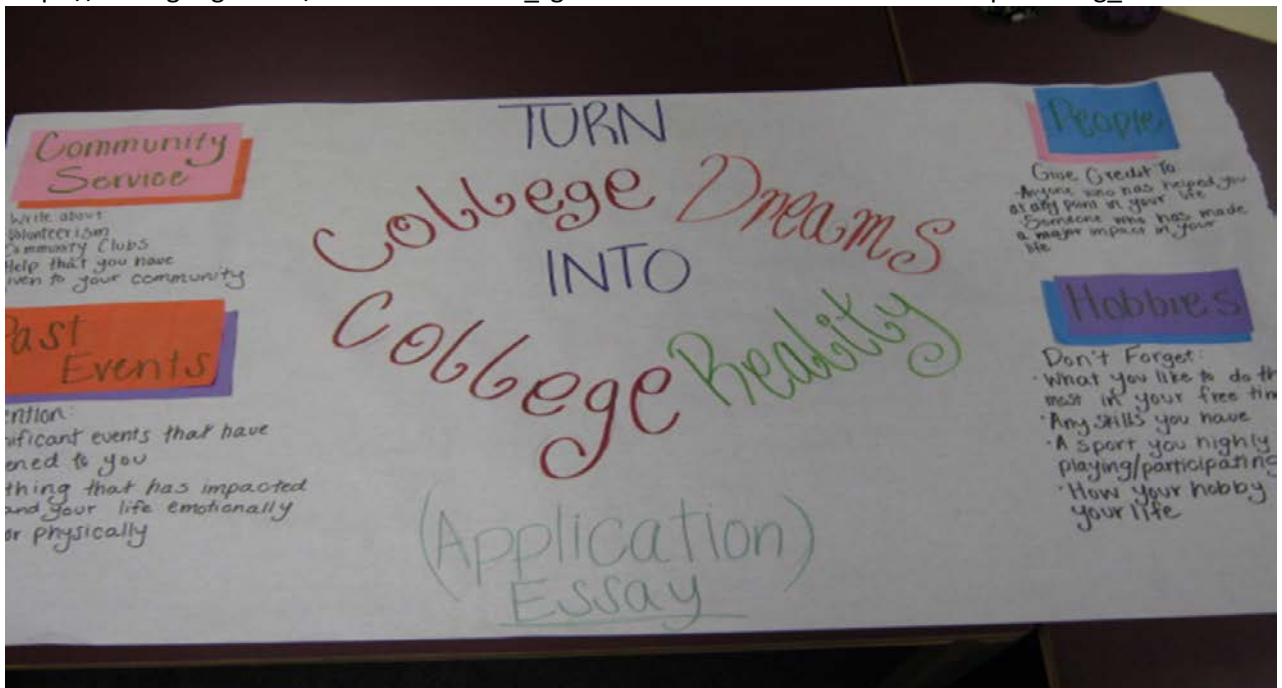 Community
Service
Write about
Volunteerism
Community Clubs
Help that you have
given to your community
Past
Events
ention:
ificant events that have
ened to you
thing that has impacted
and your life emotionally
or physically
TURN
College Dreams
INTO
College Reality
(Application)
Essay
People
Give Credit To:
-Anyone who has helped you
at any point in your life
-Someone who has made
a major impact in your
life
Hobbies
Don't Forget:
·What you like to do th
most in your free tim
·Any skills you have
·A sport you highly
playing/participating
·How your hobby
your life